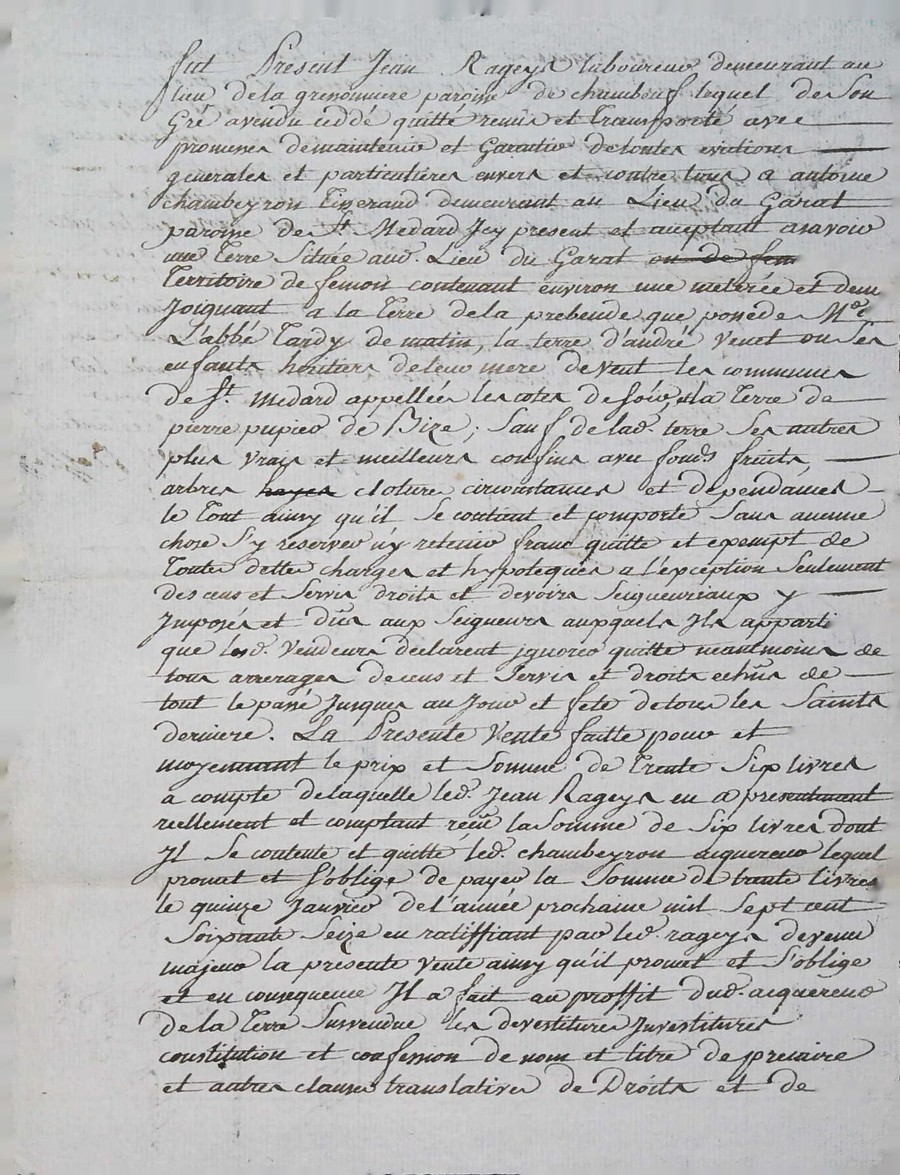 fut Present Jean Rageys laboureur demeurant au
lieu de la grenoniere paroisse de chambeuf lequel de Son
Gré a vendu ceddé quitté remis et transporté avec
promesses de maintenir et Garantir de toutes evictions
generales et particulieres envers et contre tous a antoine
chambeyron Tisserand demeurant au Lieu du Garat
paroisse de St. Medard Icy present et aceptant asavoir
une Terre Scituée aud. Lieu du Garat ou de fem
Territoire de femon contenant environ une meterée et demi
Joignant a la Terre de la prebende que possede Mre
L'abbé Tardy de matin, la terre d'andré Venet ou Ses
enfants heritiers de leur mere de vent les communes
de St. medard appellées les cotes de soir, et la Terre de
pierre pupier de Bize; Sauf de lad. terre Ses autres
plus vrais et meilleurs confins avec fonds fruits,
arbres hayes cloture, circonstances et dependances
le Tout ainsy qu'il Se contient et comporte Sans aucune
chose S'y reserver ny retenir franc quitte et exempt de
Toutes dettes charges et hypoteques a l'exception Seulement
des cens et Servis droits et devoirs Seigneuriaux y
Imposés et dus aux Seigneurs auxquels Ils apparti
que led. Vendeurs declarent ignorer quitte neantmoins de
tous arrerages de cens et Servis et droits echus de
tout le passé Jusques au Jour et fete de tous les Saints
derniere. La Presente Vente faitte pour et
moyennant le prix et Somme de Trente Six livres
a compte de laquelle led. Jean Rageys en a presentement
reellement et comptant reçu la Somme de Six livres dont
Il Se contente et quitte led. chambeyron aiquereur lequel
promet et S'oblige de payer la Somme de trente livres
le quinze Janvier de l'année prochaine mil Sept cent
Soixante Seize en ratiffiant par led. rageys devenu
majeur la presente vente ainsy qu'il promet et S'oblige
et en consequence Il a fait au proffit dud. acquereur
de la Terre Susvendue les devestitures Investitures
constitution et confession de nom et titre de precaire
et autres clauses translatives de Droits et de